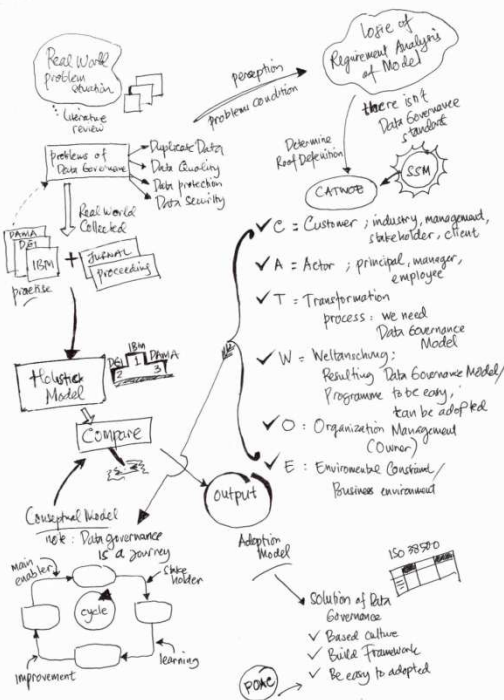 Real World
problem
situation
Literature
review
problems of
Data Governance
Duplicate Data
Data Quality
Data protection
Data Security
Real World
Collected
DAMA
DEI
IBM
practise
+
JURNAL
Proceeding
Holistic
Model
IBM
DEI
DAMA
1
2
3
Compare
Conseptual Model
note : Data governance
is a journey
main
enabler
stake
holder
cycle
improvement
learning
perception
problems condition
Logic of
Requirement Analysis
of Model
there isn't
Data Governance
standard
Determine
Root Definition
SSM
CATWOE
✓ C = Customer ; industry, management,
stakeholder, client
✓ A = Actor ; principal, manager,
employee
✓ T = Transformation
process : we need
Data Governance
Model
✓ W = Weltanschung ;
Resulting Data Governance Model/
Programme to be easy,
can be adopted
✓ O : Organization Management
(Owner)
✓ E : Enviromental Constraint/
Business environment
output
Adoption
Model
ISO 38500
solution of Data
Governance
✓ Based culture
✓ Build Framework
✓ Be easy to adopted
POAC